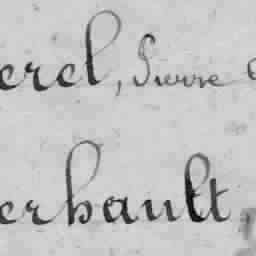 erel, Pierre
erhault,